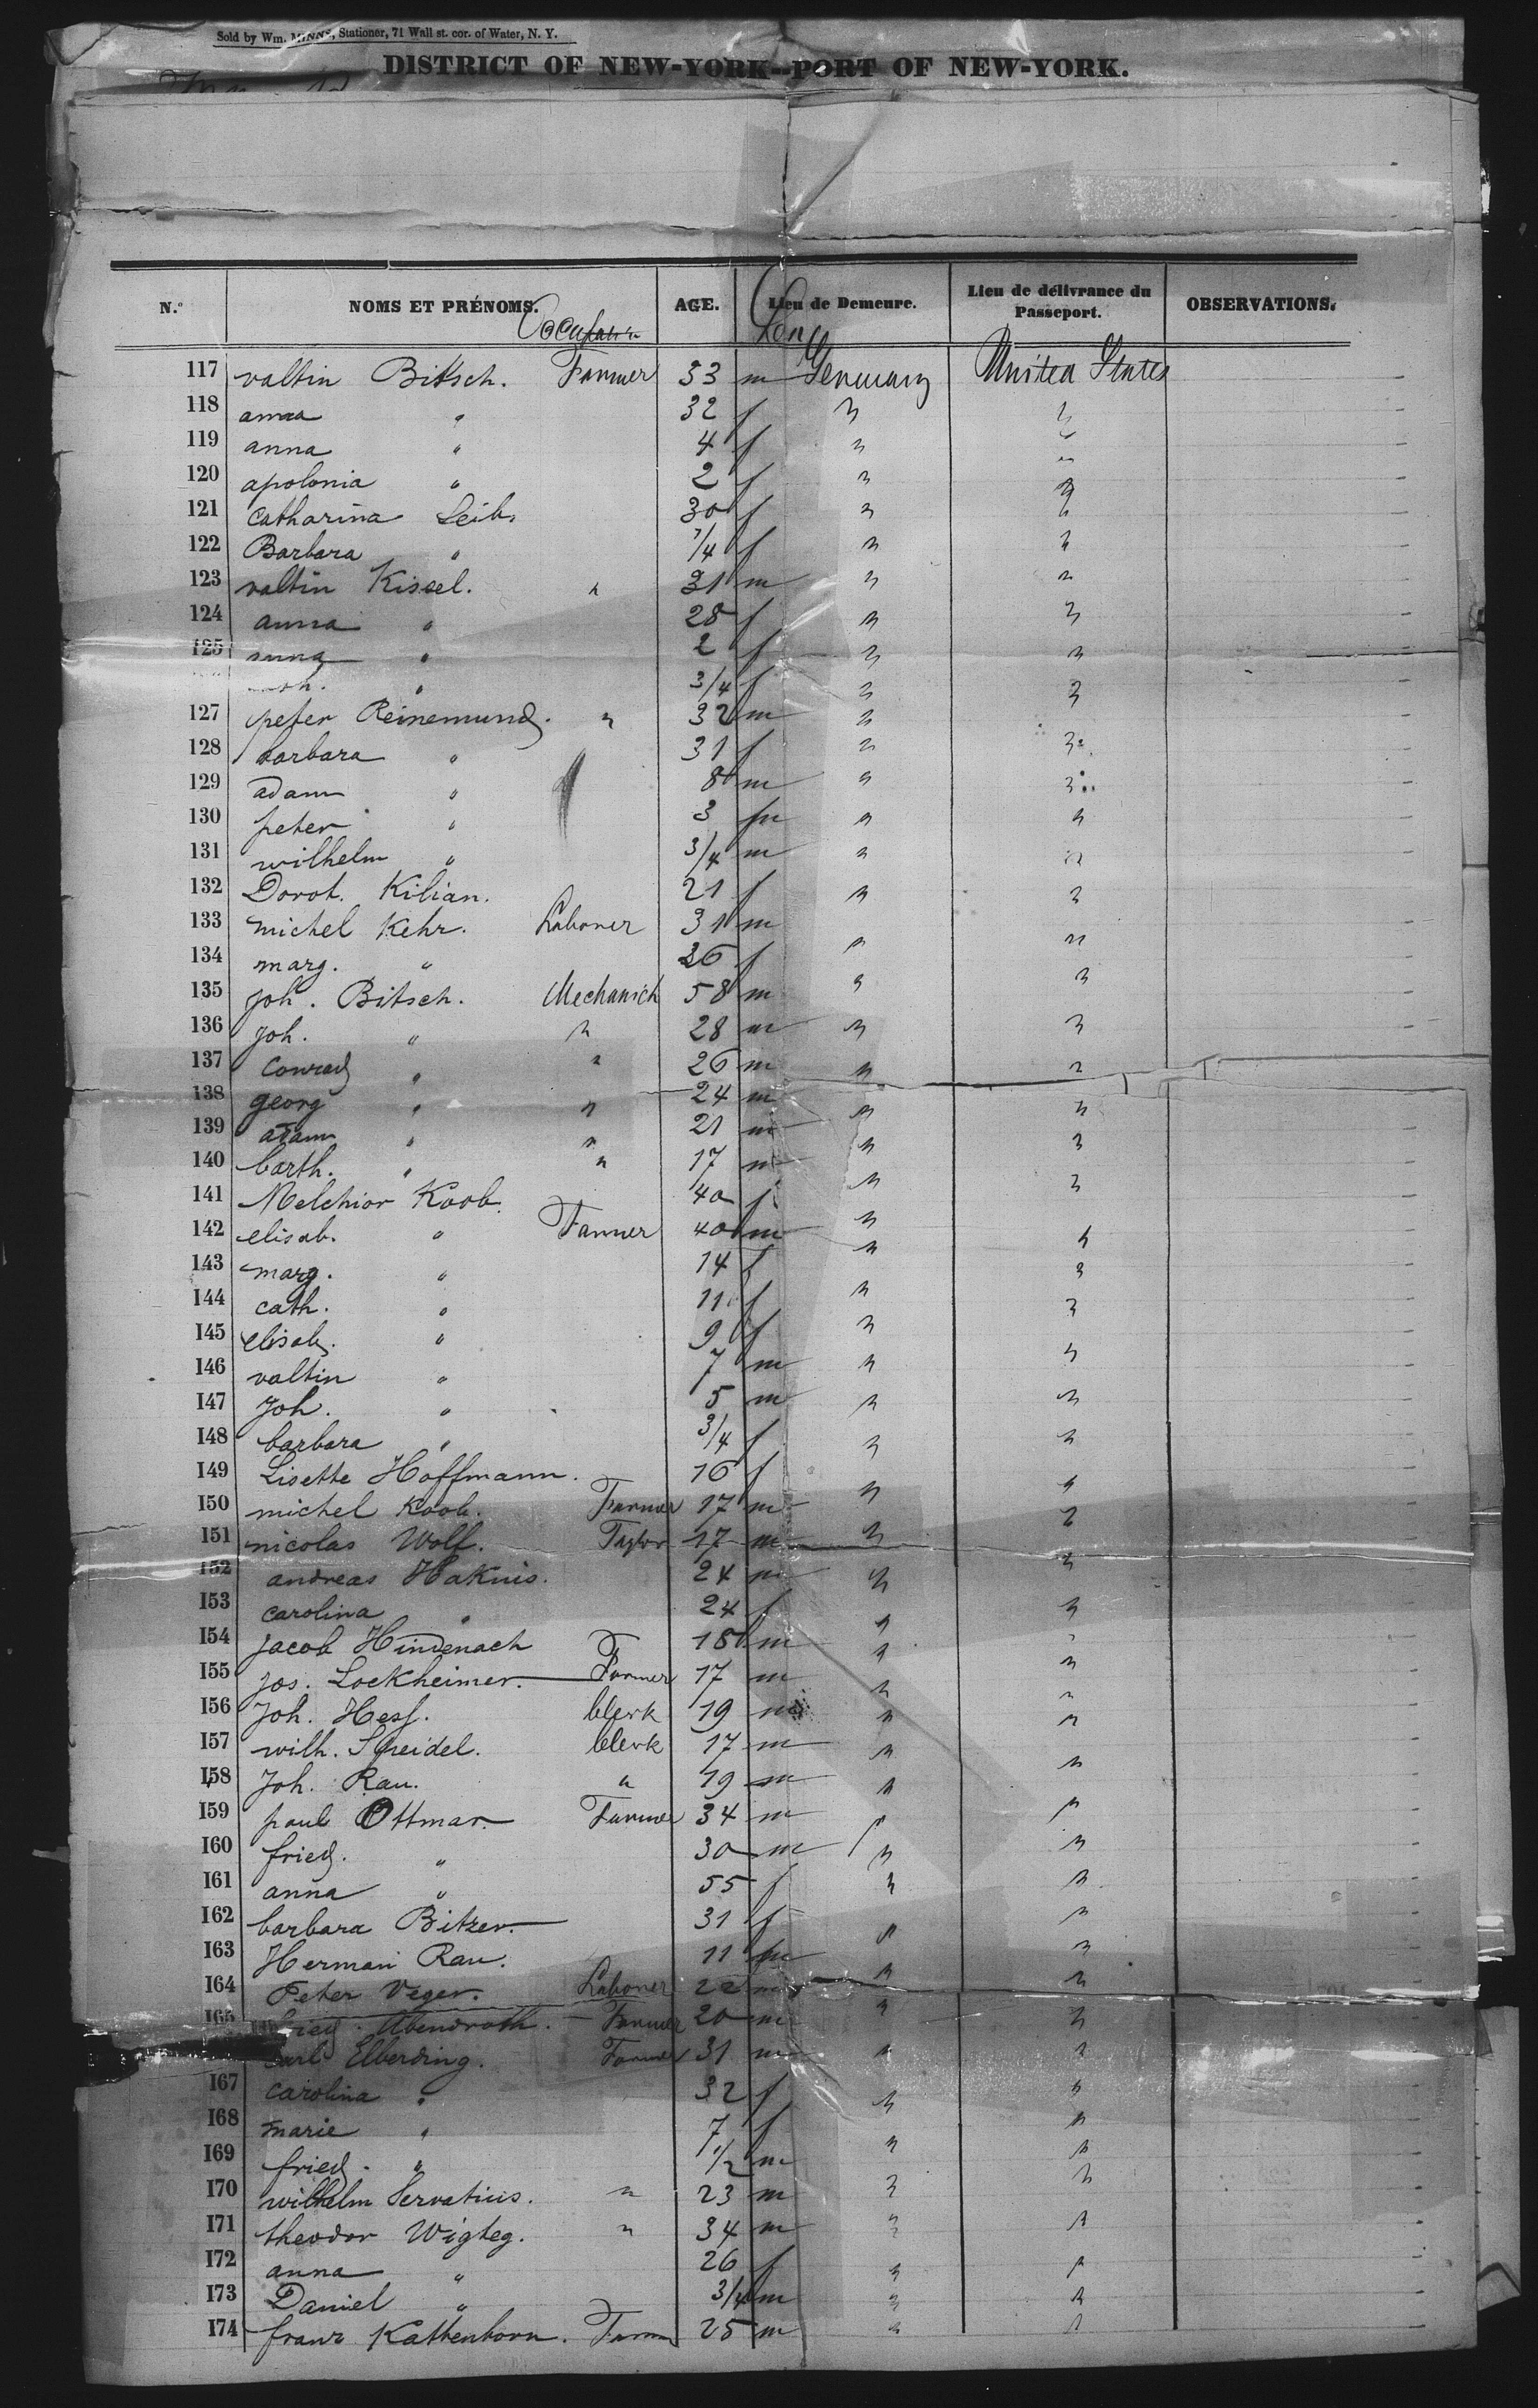 Sold by Wm. MINNS, Stationer, 71 Wall st. cor. of Water, N. Y.
DISTRICT OF NEW-YORK--PORT OF NEW-YORK.
N.° NOMS ET PRÉNOMS. Occupation AGE. Lieu de Demeure. Lieu de délivrance du Passeport. OBSERVATIONS.
117 valtin Bitsch. Farmer 33 m Germany United States
118 anna " 32 f " "
119 anna " 4 f " "
120 apolonia " 2 f " "
121 Catharina Leib. 30 f " "
122 Barbara " 1/4 f " "
123 valtin Kissel. " 31 m " "
124 anna " 28 f " "
125 anna " 2 f " "
" 3/4 f " "
127 peter Reinemund. " 32 m " "
128 barbara " 31 f " "
129 adam " 8 m " "
130 peter " 3 m " "
131 wilhelm " 3/4 m " "
132 Dorot. Kilian. 21 f " "
133 michel Kehr. Laborer 31 m
134 marg. " 26 f " "
135 joh. Bitsch. Mechanich 58 m " "
136 joh. " " 28 m " "
137 Conrad " " 26 m " "
138 georg " " 24 m " "
139 adam " " 21 m " "
140 barth. " " 17 m " "
141 Melchior Koob. 40 f "
142 elisab. " Farmer 40 m " "
143 marg. " 14 f " "
144 cath. " 11 f " "
145 elisab. " 9 f " "
146 valtin " 7 m " "
147 Joh. " 5 m " "
148 barbara " 3/4 f " "
149 Lisette Hoffmann. 16 f " "
150 michel Koob. Farmer 17 m " "
151 nicolas Wolf. Taylor 17 m " "
152 andreas Haknis. 24 m " "
153 carolina " 24 f " "
154 jacob Hindenach 18 m " "
155 jos. Lockheimer. Farmer 17 m " "
156 Joh. Hess. Clerk 19 m " "
157 wilh. Speidel. Clerk 17 m " "
158 Joh. Rau. " 19 m " "
159 paul Ottmar. Farmer 34 m " "
160 fried. " 30 m " "
161 anna " 55 f " "
162 barbara Bitzer. 31 f " "
163 Herman Rau. 11 m " "
164 Peter Veger. Laborer 22 m " "
165 fried. Abendroth. Farmer 20 m " "
Carl Elberding. Farmer 31 m " "
167 Carolina " 32 f " "
168 marie " 7 f " "
169 fried. " 1/2 m " "
170 wilhelm Servatius. " 23 m " "
171 theodor Wigteg. " 34 m " "
172 anna " 26 f " "
173 Daniel " 3/4 m " "
174 franz Kattenborn. Farm 25 m " "